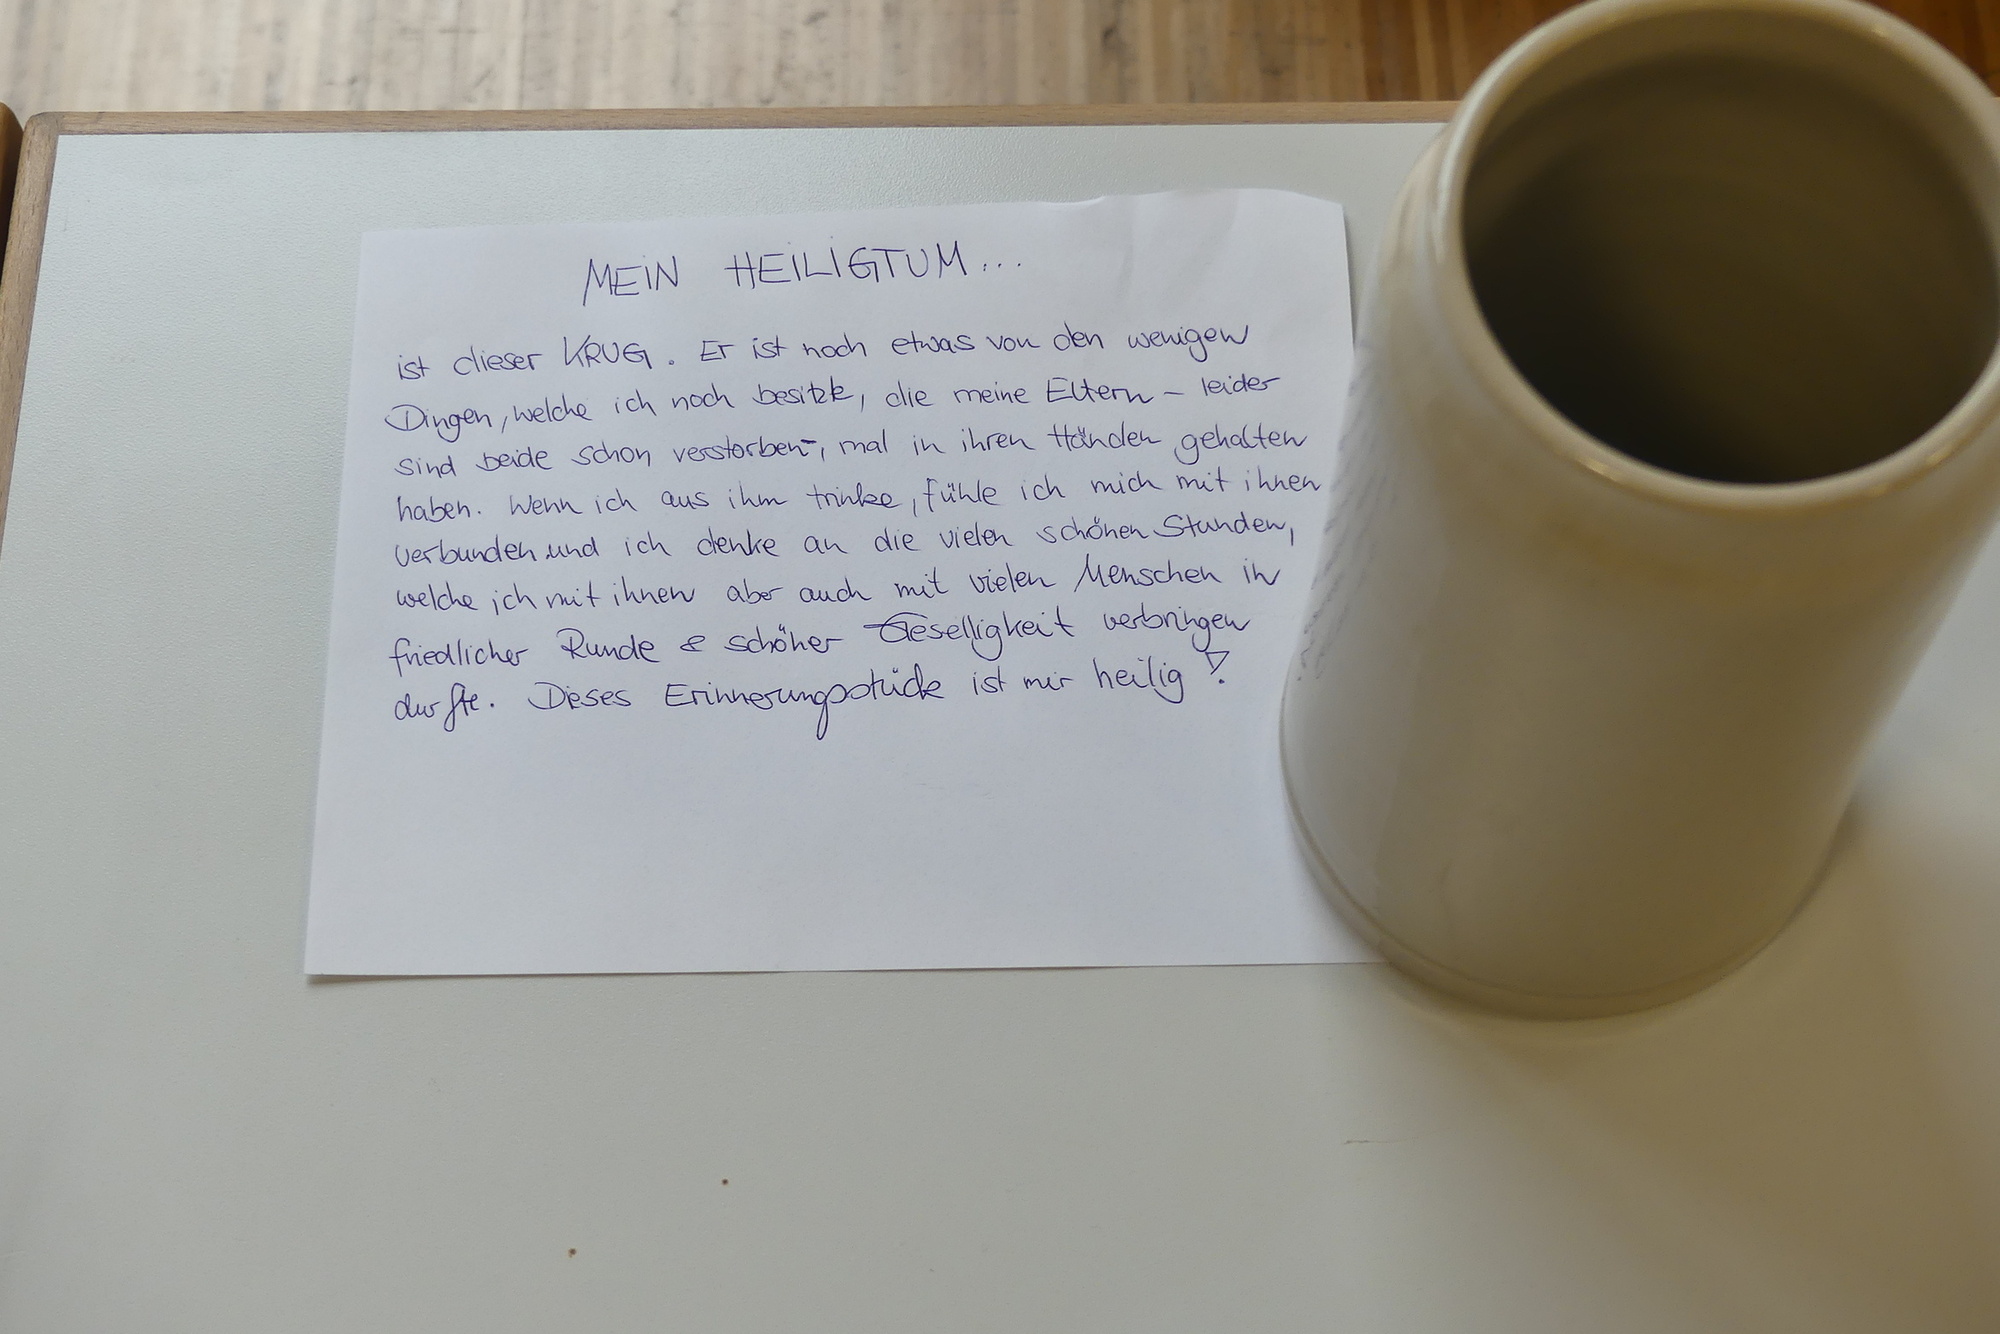 MEIN HEILIGTUM...
ist dieser KRUG. Er ist noch etwas von den wenigen
Dingen, welche ich noch besitze, die meine Eltern - leider
sind beide schon verstorben-, mal in ihren Händen gehalten
haben. Wenn ich aus ihm trinke, fühle ich mich mit ihnen
verbunden und ich denke an die vielen schönen Stunden,
welche ich mit ihnen aber auch mit vielen Menschen in
friedlicher Runde & schöner Geselligkeit verbringen
durfte. Dieses Erinnerungsstück ist mir heilig!